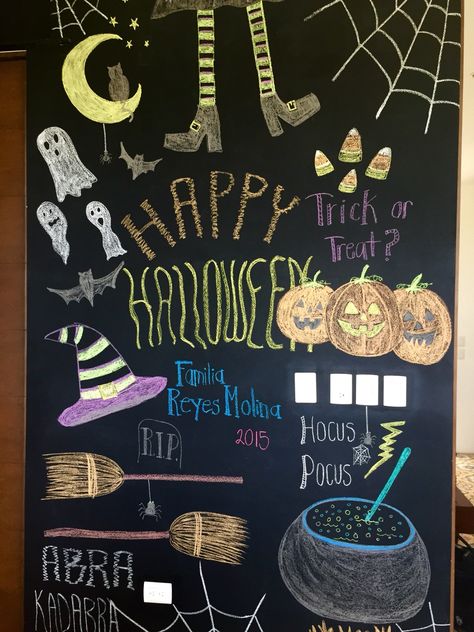 HAPPY
HALLOWEEN
Trick or
Treat?
Familia
Reyes Molina
2015
R.I.P
Hocus
Pocus
ABRA
KADABRA